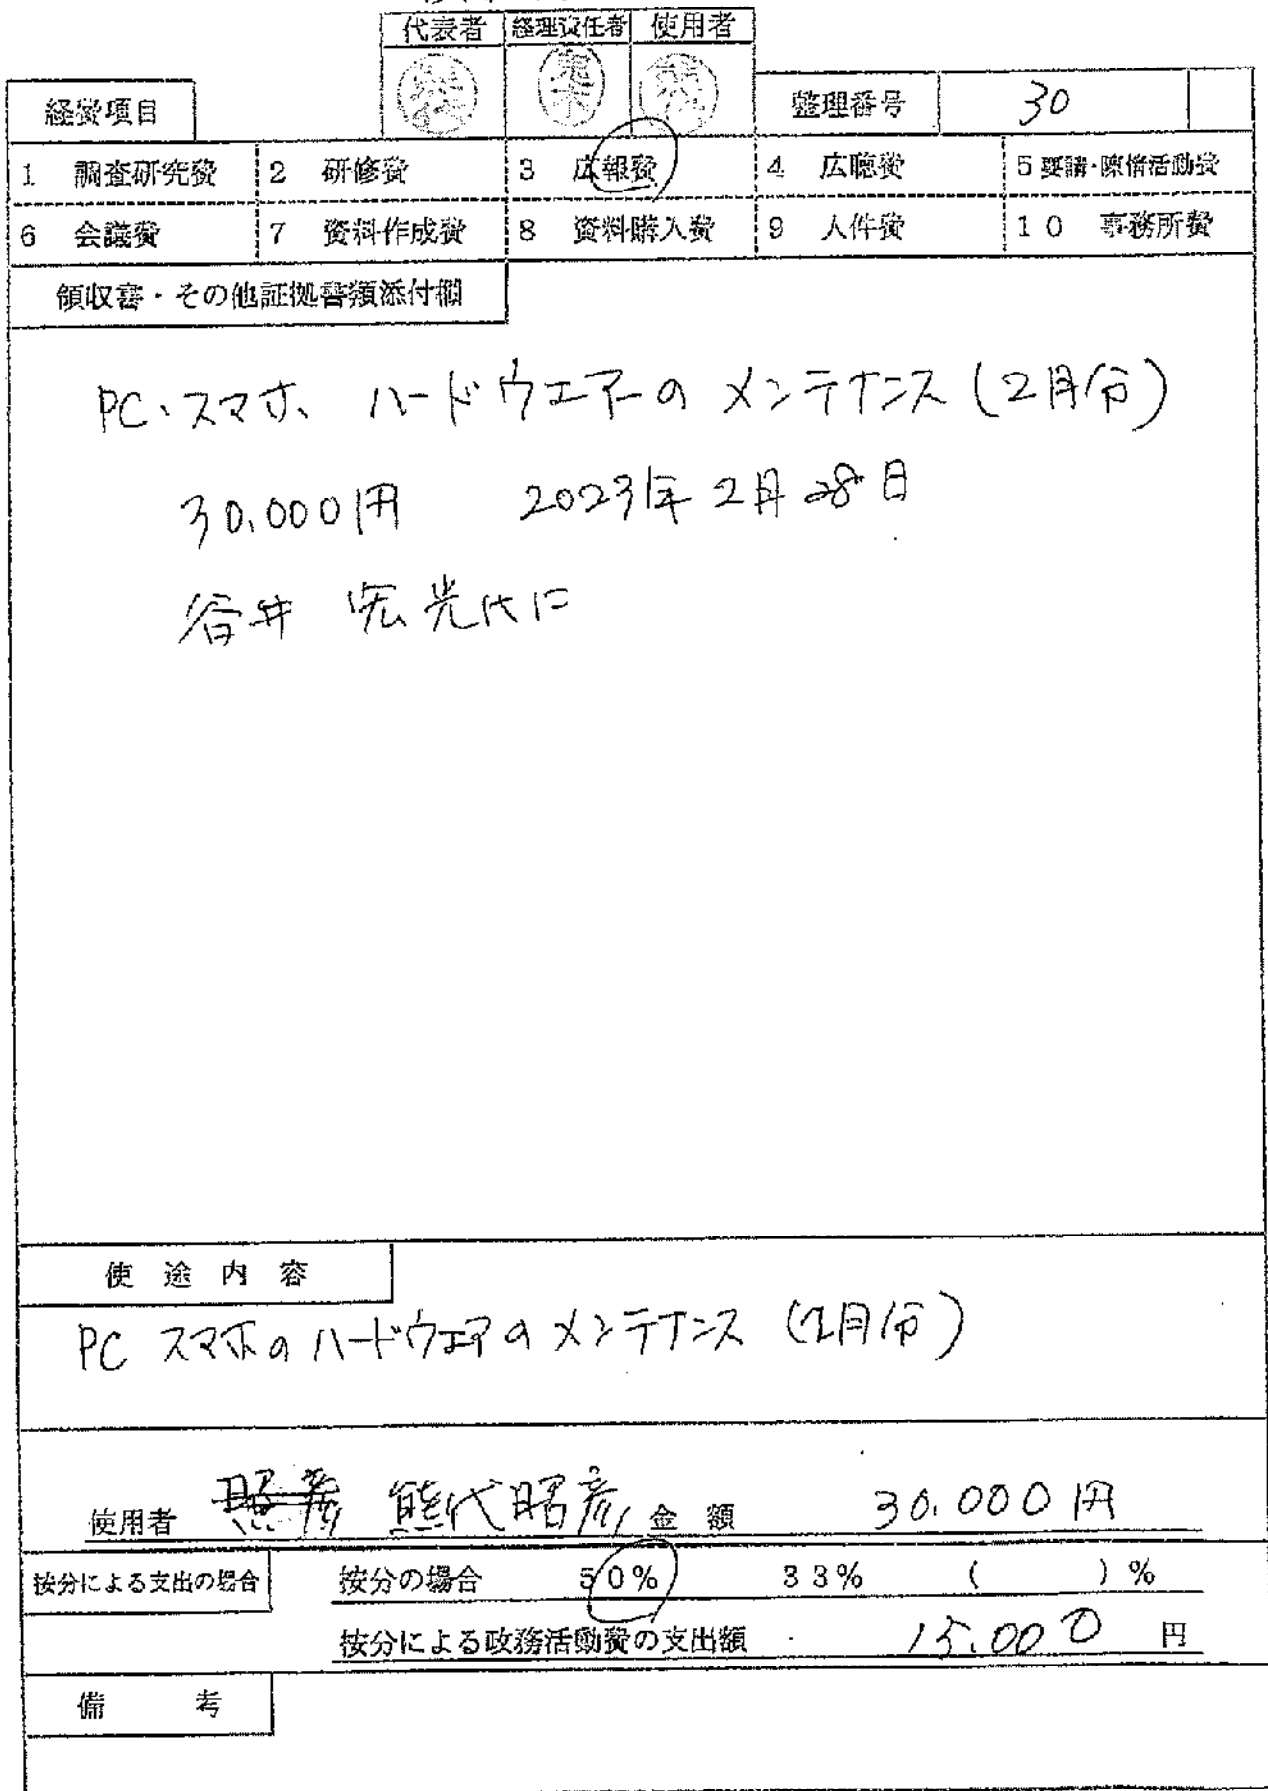 代表者 経理責任者 使用者
経費項目
整理番号 30
1 調査研究費 2 研修費 3 広報費 4 広聴費 5 要請・陳情活動費
6 会議費 7 資料作成費 8 資料購入費 9 人件費 10 事務所費
領収書・その他証拠書類添付欄
PC、スマホ、ハードウエアーのメンテナンス(2月分)
30,000円 2023年2月28日
谷井 宏光
使途内容
PC スマホのハードウェアのメンテナンス (2月分)
使用者 熊代昭彦 金額 30,000円
按分による支出の場合 按分の場合 50% 33% ( )%
按分による政務活動費の支出額 15,000 円
備考